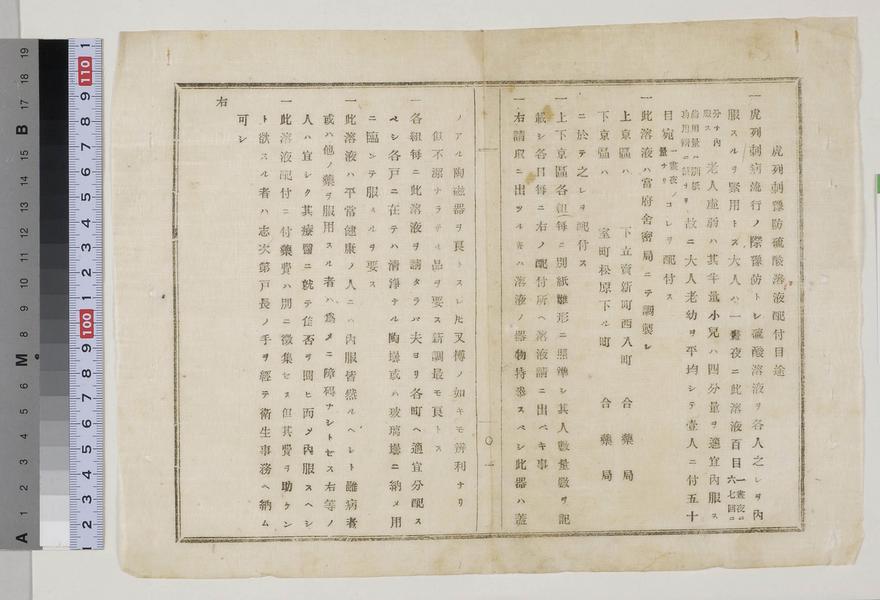 虎列刺豫防硫酸溶液配付目途
一虎列刺病流行ノ際豫防トシ硫酸溶液ヲ各人之レヲ內
服スルヲ緊用トス大人ハ一晝夜ニ此溶液百目一晝夜ニ六七回ニ
分ケ內服ス 老人虛弱ハ其半量小兒ハ四分量ヲ適宜內服ス
故ニ大人老幼ヲ平均シテ壹人ニ付五十
目宛一晝夜ノ量ナリコレヲ配付ス
一此溶液ハ當府舍密局ニテ調製シ
上京區ハ 下立賣新町西入町 合藥局
下京區ハ 室町松原下ル町 合藥局
ニ於テ之レヲ配付ス
一上下京區各組每ニ別紙雛形ニ照準シ其人數量數ヲ記
載シ各日每ニ右ノ配付所ヘ溶液請ニ出ベキ事
一右請取ニ出ツルキハ溶液ノ器物持參スベシ此器ハ蓋
ノアル陶磁器ヲ良トスレ𪜈又博ノ如キモ辨利ナリ
但不潔ナラサル品ヲ要ス新調最モ良トス
一各組每ニ此溶液ヲ請タラバ夫ヨリ各町ヘ適宜分配ス
ベシ各戶ニ在テハ淸淨ナル陶壜或ハ玻璃壜ニ納メ用
ニ臨ンテ服スルヲ要ス
一此溶液ハ平常健康ノ人ニハ內服皆然ルヘシト雖病者
或ハ他ノ藥ヲ服用スル者ハ爲メニ障碍ナシトセス右等ノ
人ハ宜シク其療醫ニ就テ信否ヲ問ヒ而メ內服スヘシ
一此溶液配付ニ付藥費ハ別ニ徵集セス但其費ヲ助ケン
ト欲スル者ハ志次第戶長ノ手ヲ經テ衞生事務ヘ納ム
可シ
右